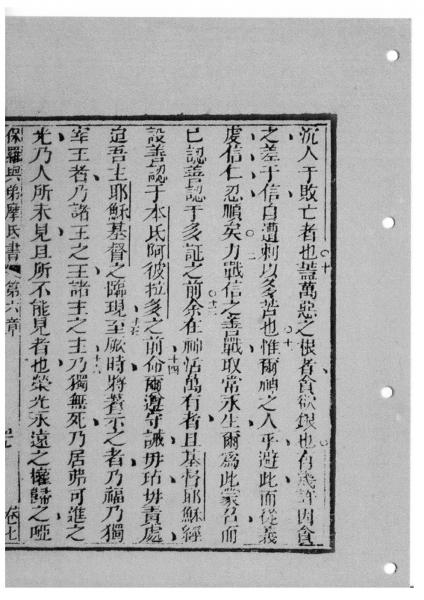 沉人于敗亡者也蓋萬惡之根者貪欲銀也有幾許因貪
之差于信自遭刺以多苦也惟爾神之人乎避此而從義
虔信仁忍順矣力戰信之善戰取常永生爾為此蒙召而
已認善認于多証之前余在神活萬有者且基督耶穌經
設善認于本氏彼拉多之前俞爾遵守誡毋玷毋責處
迨吾主耶穌基督之臨現至厥時將著示之者乃福乃獨
宰王者乃諸王之王諸主之主乃獨無死乃居弗可進之
光乃人所未見且所不能見者也榮光永遠之權歸之啞
保羅與弟摩氏書 第六章 卷七